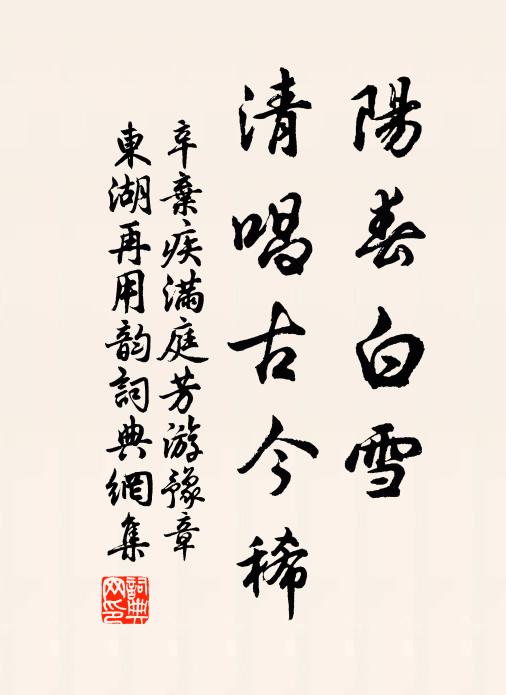 陽春白雪
清唱古今稀
辛棄疾滿庭芳游豫章
東湖再用韵詞典網集
詞典
网印